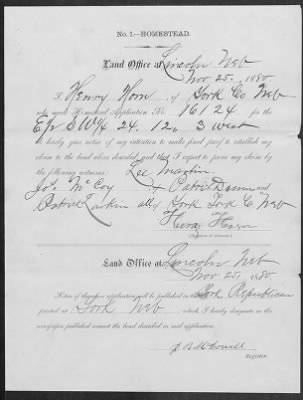 No. 1.—HOMESTEAD.
Land Office at Lincoln Neb
Nov 25. 1880.
I, Henry Horn, of York Co Neb
who made Homestead Application No. 16124 for the
E/2 S W 1/4 24. 12. 3 west
do hereby give notice of my intention to make final proof to establish my
claim to the land above described, and that I expect to prove my claim by
the following witnesses: Lee Martin,
Jos McCoy & Patrick Dunn and
Patrick Larkin all of York York Co Neb
Henry
Land Office at Lincoln Neb
Nov 25, 1880
Notice of the above application will be published in the York Republican
printed at York Neb which I hereby designate as the
newspaper published nearest the land described in said application.
J B McDowell
Register.